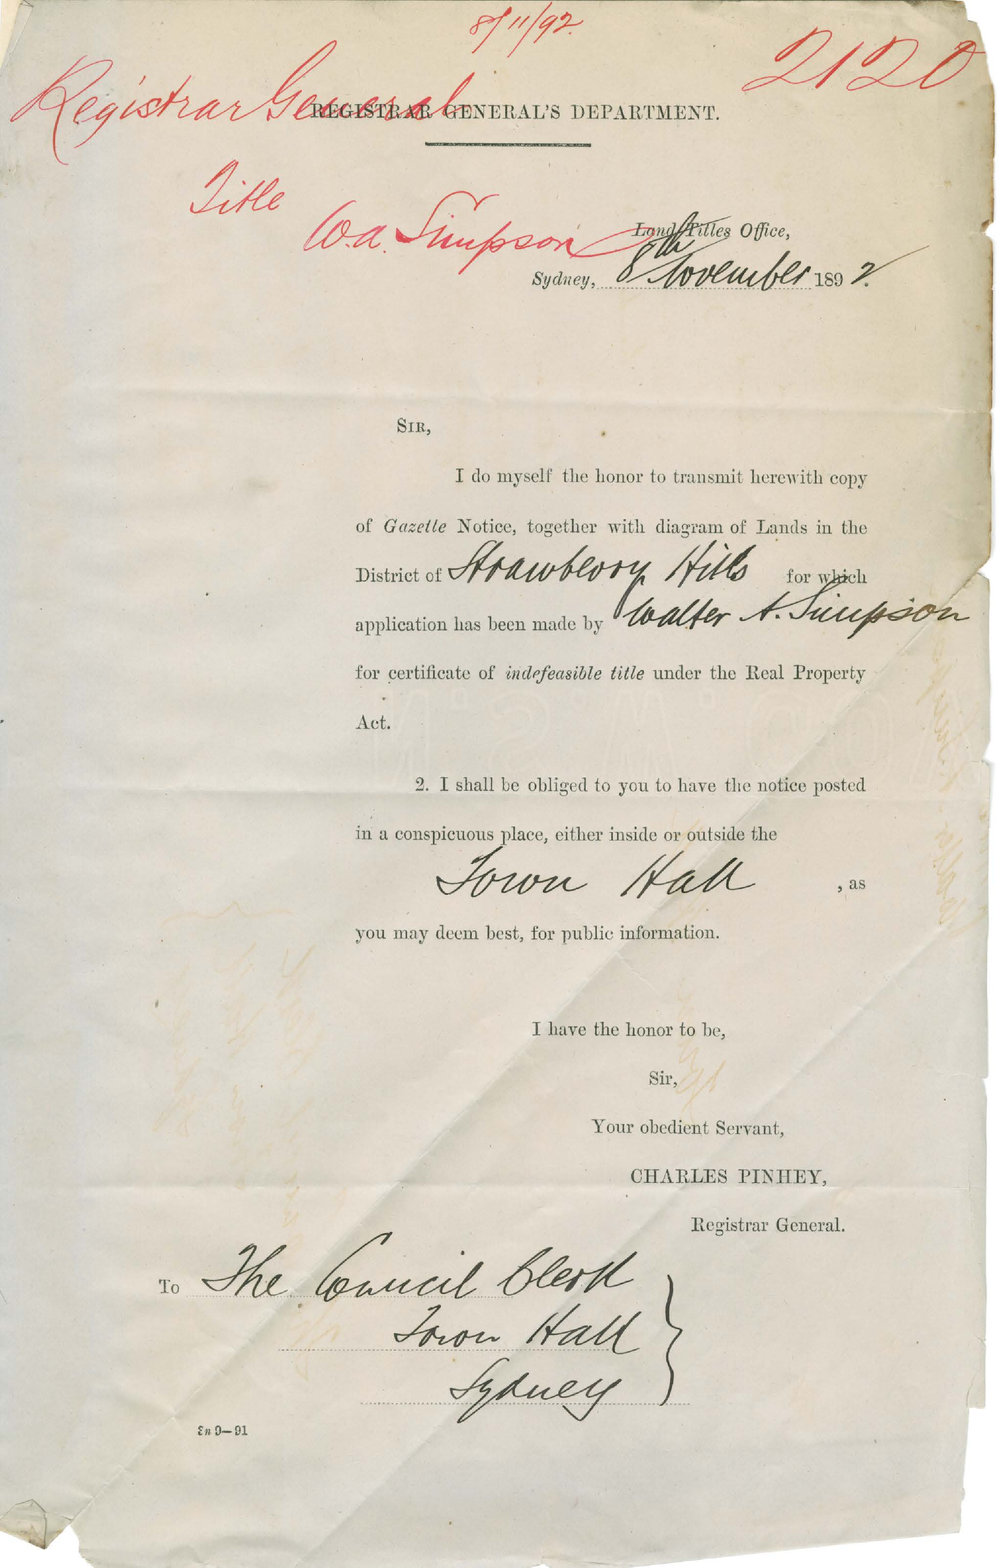 8/11/92.
2120
Registrar General
REGISTRAR GENERAL'S DEPARTMENT.
Title
W.A. Simpson
Land Titles Office,
Sydney, 8th November 1892.
SIR,
I do myself the honor to transmit herewith copy
of Gazette Notice, together with diagram of Lands in the
District of Strawberry Hills for which
application has been made by Walter A. Simpson
for certificate of indefeasible title under the Real Property
Act.
2. I shall be obliged to you to have the notice posted
in a conspicuous place, either inside or outside the
Town Hall , as
you may deem best, for public information.
I have the honor to be,
Sir,
Your obedient Servant,
CHARLES PINHEY,
Registrar General.
To The Council Clerk
Town Hall
Sydney
9—91